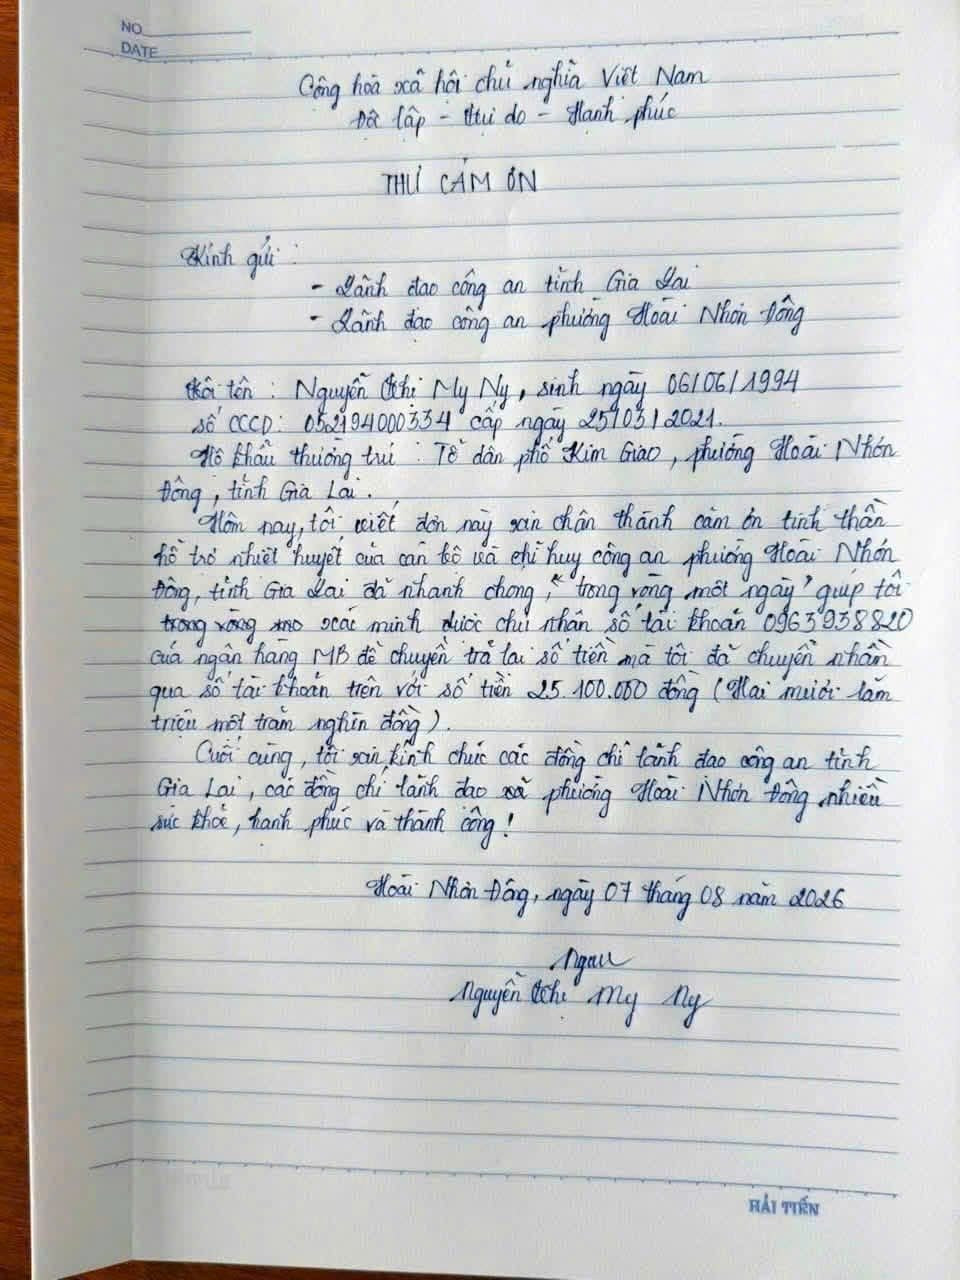 NO
DATE
Cộng hoà xã hội chủ nghĩa Việt Nam
Độc lập - Tự do - Hạnh phúc
THƯ CẢM ƠN
Kính gửi :
- Lãnh đạo công an tỉnh Gia Lai
- Lãnh đạo công an phường Hoài Nhơn Đông
Tôi tên : Nguyễn Thị My Ny, sinh ngày 06/06/1994
số CCCD: 052194000334 cấp ngày 25/03/2021.
Hộ khẩu thường trú : Tổ dân phố Kim Giao, phường Hoài Nhơn
Đông, tỉnh Gia Lai.
Hôm nay, tôi viết đơn này xin chân thành cảm ơn tinh thần
hỗ trợ nhiệt huyết của cán bộ và chỉ huy công an phường Hoài Nhơn
Đông, tỉnh Gia Lai đã nhanh chóng, "trong vòng một ngày" giúp tôi
trong vòng mo xác minh được chủ nhân số tài khoản 0963938820
của ngân hàng MB để chuyển trả lại số tiền mà tôi đã chuyển nhầm
qua số tài khoản trên với số tiền 25.100.000 đồng (Hai mươi lăm
triệu một trăm nghìn đồng).
Cuối cùng, tôi xin kính chúc các đồng chí lãnh đạo công an tỉnh
Gia Lai, các đồng chí lãnh đạo xã phường Hoài Nhơn Đông nhiều
sức khoẻ, hạnh phúc và thành công!
Hoài Nhơn Đông, ngày 07 tháng 08 năm 2026
Nguyễn Thị My Ny
HẢI TIẾN